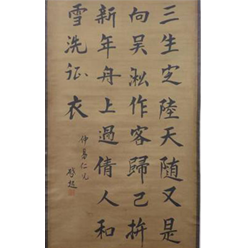 三生定陸天隨又是
向吴淞作客歸已拚
新年舟上過倩人和
雪洗征衣
仲笃仁兄
啓超